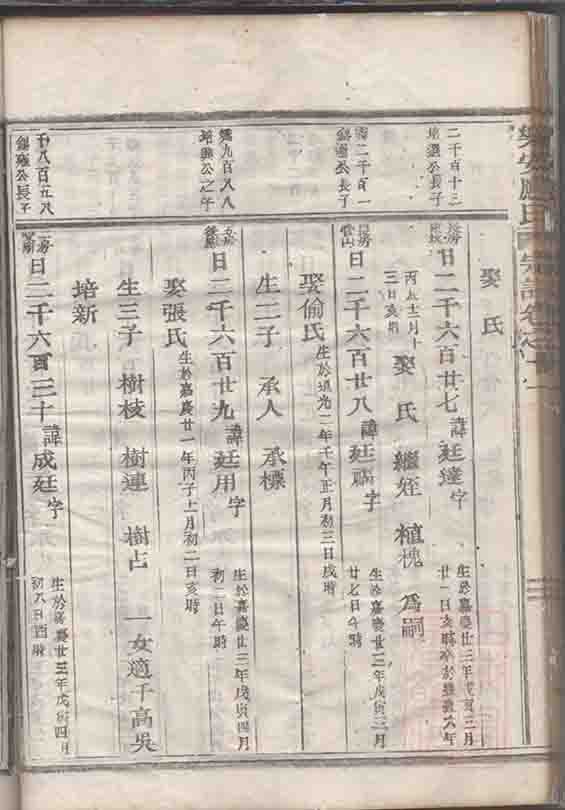 娶 氏
二千百十三
培選公長子
長房
日二千六百廿七 諱廷達字
生於嘉慶廿三年戊寅三月
廿一日亥時卒於
丙辰十二月十
三日亥時
娶 氏 繼姪 植槐 為嗣
二千百一
錫通公長子
日二千六百廿八 諱廷福字
生於嘉慶廿三年戊寅三月
廿七日午時
娶俞氏
生於道光二年壬午正月初三日戌時
生二子 承人 承標
九百八八
培興公之子
五房
日二千六百廿九 諱廷用字
生於嘉慶廿三年戊寅四月
初二日午時
娶張氏
生於嘉慶廿一年丙子十一月初二日亥時
生三子 樹枝 樹連 樹占 一女適千高吳
培新
千八百五八
錫雍公長子
二房
日二千六百三十 諱成廷字
生於嘉慶廿三年戊寅四月
初八日酉時